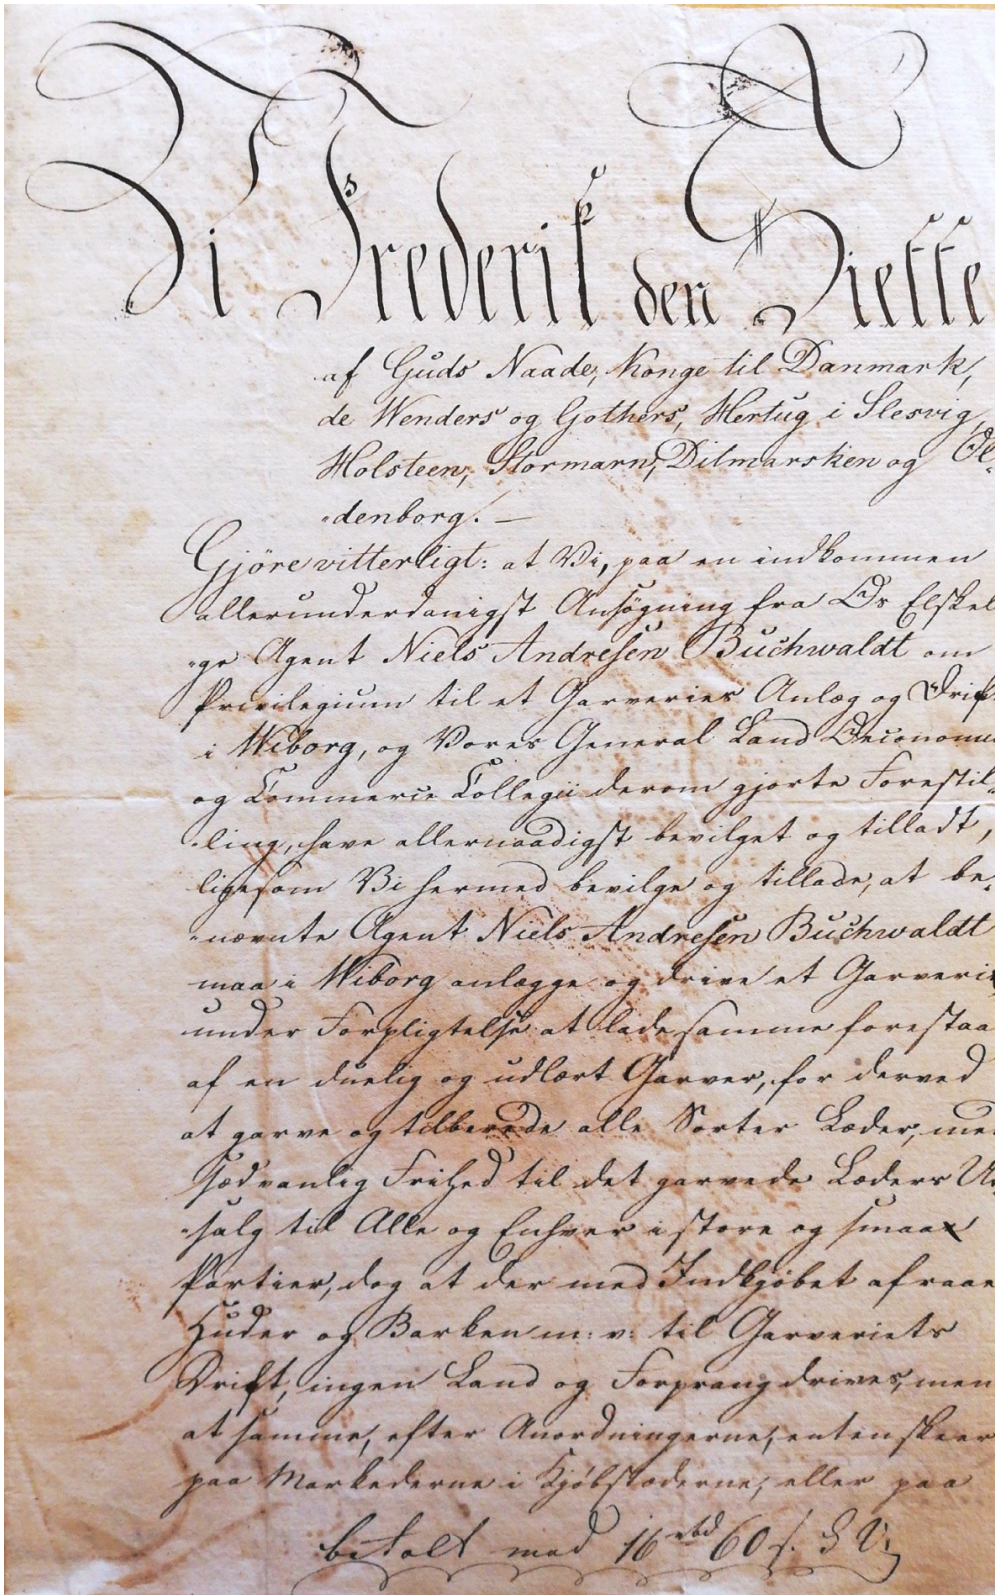 Vi Frederik den Siette
af Guds Naade, Konge til Danmark,
de Wenders og Gothers, Hertug i Slesvig,
Holsteen, Stormarn, Ditmarsken og Ol-
denborg. —
Gjöre vitterligt: at Vi, paa en indkommen
allerunderdanigst Ansøgning fra Os Elskel
-ge Agent Niels Andresen Buchwaldt om
Privilegium til et Garveries Anlæg og Drift
i Wiborg, og Vores General Land Oeconomie
og Commerce Collegii derom gjorte Forestil-
-ling, have allernaadigst bevilget og tilladt,
ligesom Vi hermed bevilge og tillade, at be-
-nævnte Agent Niels Andresen Buchwaldt
maa i Wiborg anlægge og drive et Garverie
under Forpligtelse at lade samme forestaae
af en duelig og udlært Garver, for derved
at garve og tilberede alle Sorter Læder, med
sædvanlig Frihed til det garvede Læders Ud
-salg til Alle og Enhver i store og smaae
Partier, dog at der med Indkjøbet af raae
Huder og Barken m: v: til Garveriets
Drift, ingen Land og Forprang drives, men
at samme, efter Anordningerne, enten skeer
paa Markederne i Kjøbstæderne, eller paa
betalt med 16 rbd 60 s. S V.